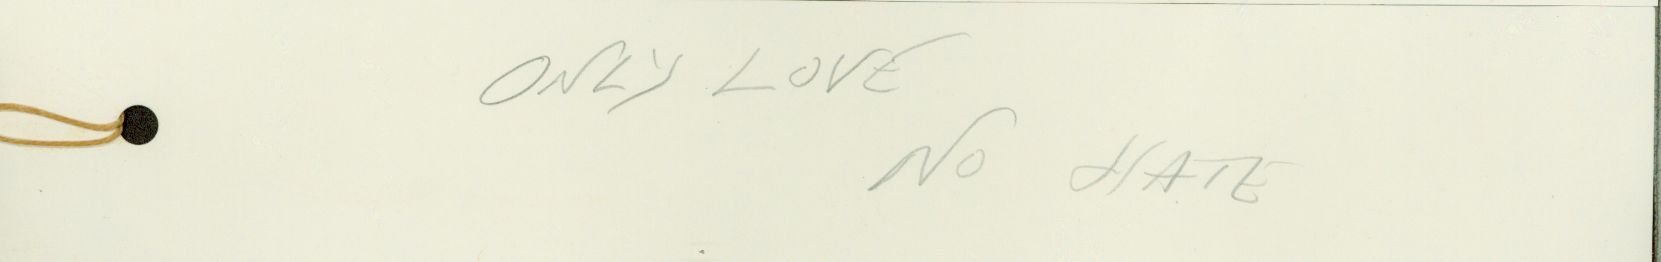 ONLY LOVE
NO HATE